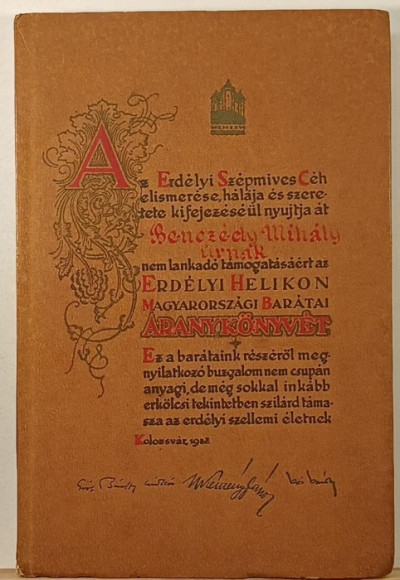 Az Erdélyi Szépmives Céh
elismerése, hálája és szere-
tete kifejezéséül nyujtja át
Benczédy Mihály
úrnak
nem lankadó támogatásáért az
Erdélyi Helikon
Magyarországi Barátai
ARANYKÖNYVÉT
Ez a barátaink részéről meg-
nyilatkozó buzgalom nem csupán
anyagi, de még sokkal inkább
erkölcsi tekintetben szilárd táma-
sza az erdélyi szellemi életnek
Kolozsvár, 1942
Kemény János